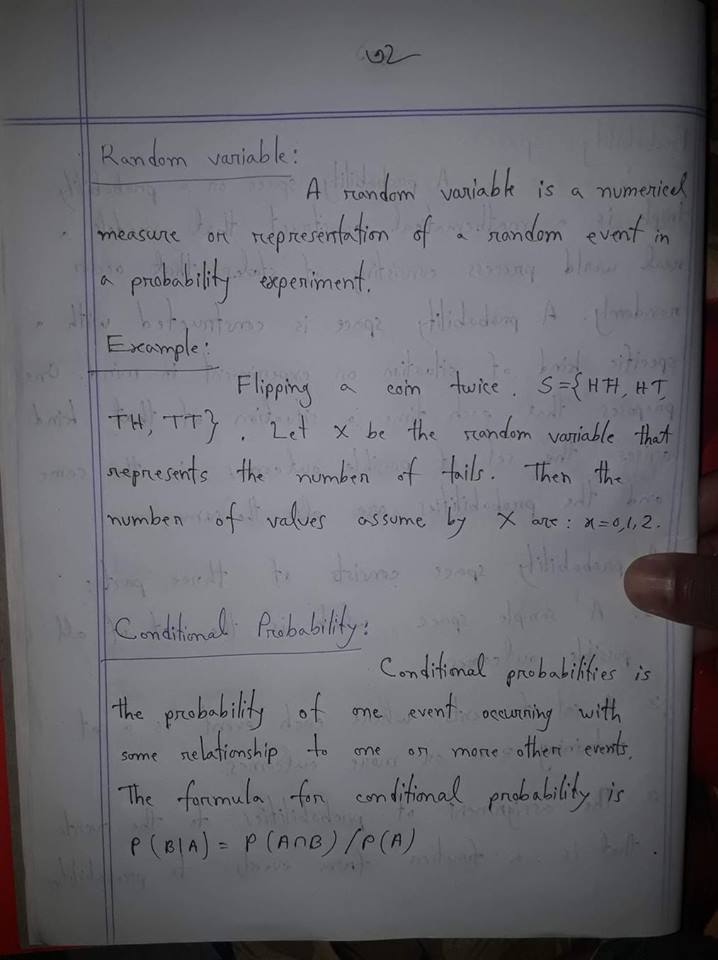 ৩২
Random variable:
A random variable is a numerical
measure or representation of a random event in
a probability experiment.
Example:
Flipping a coin twice. S={HH, HT,
TH, TT}. Let X be the random variable that
represents the number of tails. Then the
number of values assume by X are: x=0,1,2.
Conditional Probability:
Conditional probabilities is
the probability of one event occurring with
some relationship to one or more other events.
The formula for conditional probability is
P(B|A) = P(A∩B)/P(A)